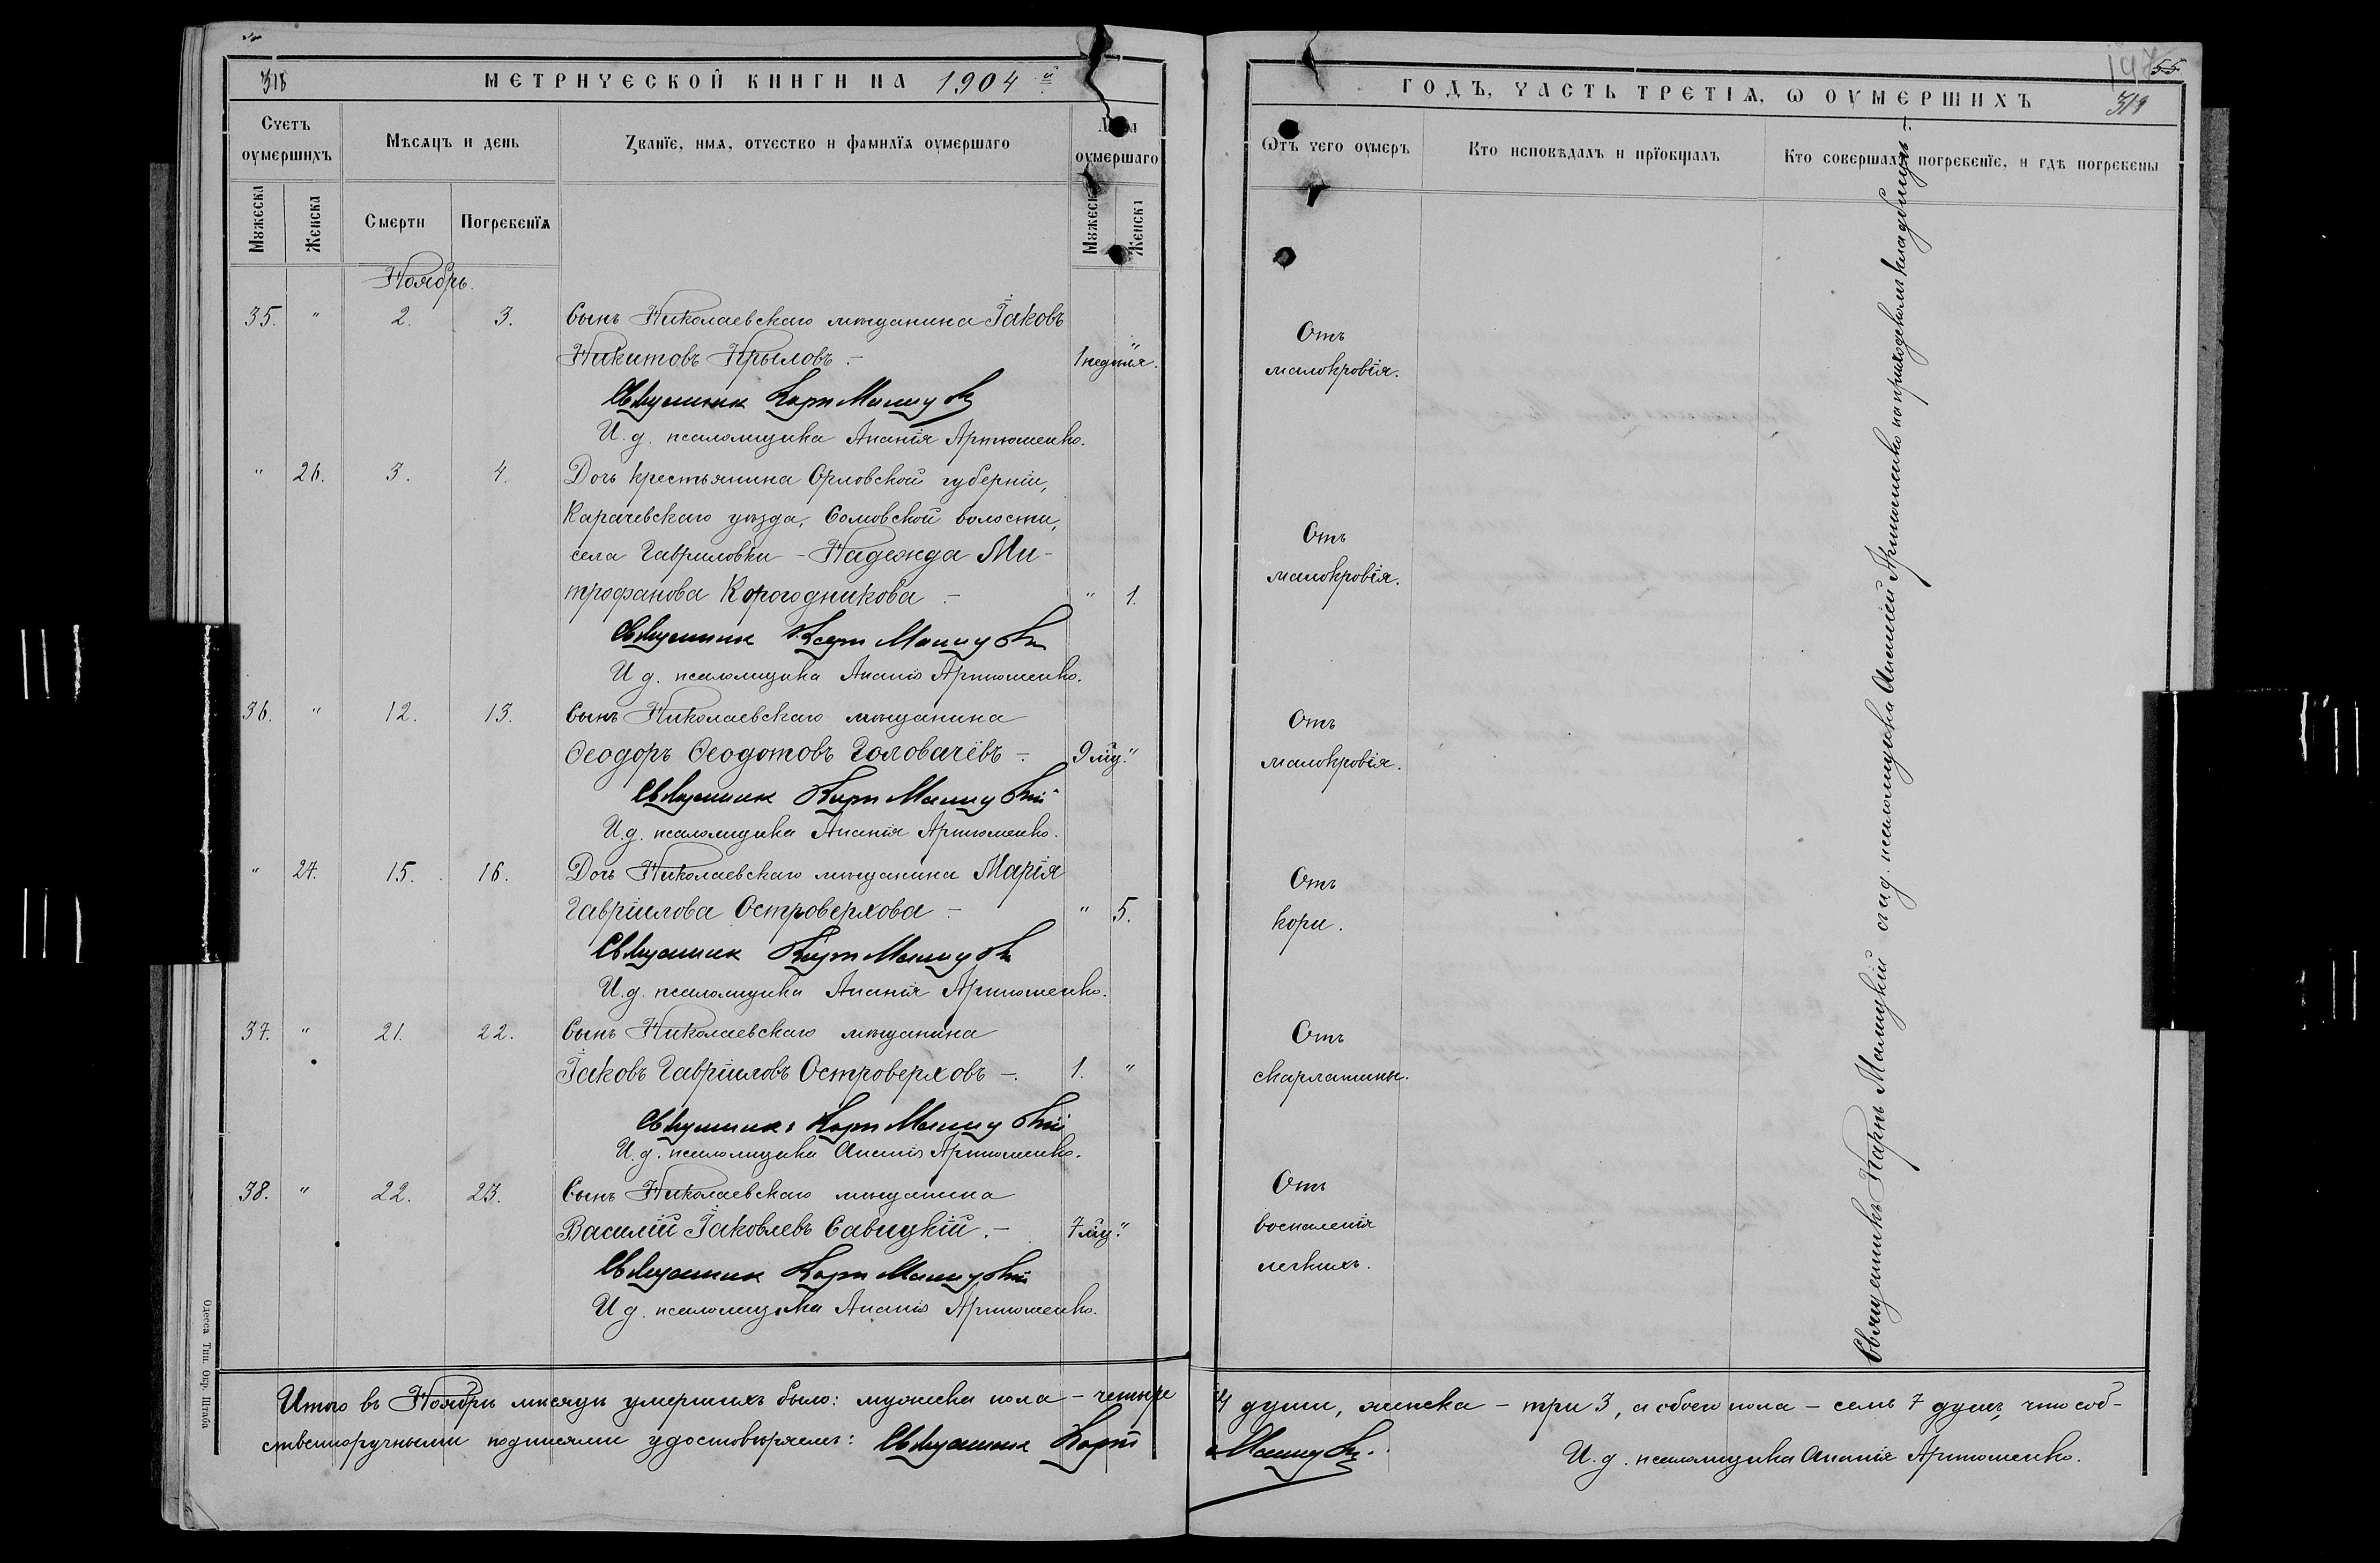 318
МЕТРИЧЕСКОЙ КНИГИ НА 1904 й
Счетъ оумершихъ
Мѣсяцъ и день
Званїе, имя, отчество и фамилїя оумершаго
Лѣта оумершаго
Мужеска
Женска
Смерти
Погребенїя
Мужеска
Женска
Ноябрь.
35. " 2. 3. Сынъ Николаевскаго мѣщанина Іаковъ
Никитовъ Крыловъ. – 1 недѣля. "
Священникъ Карпъ Малицкій
И. д. псаломщика Ананія Артюшенко.
" 26. 3. 4. Дочь крестьянина Орловской губерніи,
Карачевскаго уѣзда, Сомовской волости,
села Гавриловки – Надежда Ми-
трофанова Корогодникова – " 1.
Священникъ Карпъ Малицкій
И. д. псаломщика Ананія Артюшенко.
36. " 12. 13. Сынъ Николаевскаго мѣщанина
Ѳеодоръ Ѳеодотовъ Головачёвъ –. 9 мц. "
Священникъ Карпъ Малицкій
И. д. псаломщика Ананія Артюшенко.
" 27. 15. 16. Дочь Николаевскаго мѣщанина Марія
Гавріилова Островерхова – " 5.
Священникъ Карпъ Малицкій
И. д. псаломщика Ананія Артюшенко.
37. " 21. 22. Сынъ Николаевскаго мѣщанина
Іаковъ Гавріиловъ Островерховъ –. 1. "
Священникъ Карпъ Малицкій
И. д. псаломщика Ананія Артюшенко.
38. " 22. 23. Сынъ Николаевскаго мѣщанина
Василій Іаковлевъ Савицкій. – 7 мц. "
Священникъ Карпъ Малицкій
И. д. псаломщика Ананія Артюшенко.
Итого въ Ноябрѣ мѣсяцѣ умершихъ было: мужеска пола – четыре
ственноручными подписями удостовѣряемъ: Священникъ Карпъ
Одесса Тип. Окр. Штаба
55
319
ГОДЪ, ЧАСТЬ ТРЕТІЯ, Ѡ ОУМЕРШИХЪ
Ѿтъ чего оумеръ
Кто исповѣдалъ и прїобщалъ
Кто совершалъ погребенїе, и гдѣ погребены
Отъ
малокровія.
Отъ
малокровія.
Отъ
малокровія.
Отъ
кори.
Отъ
скарлатины.
Отъ
воспаленія
легкихъ.
Священникъ Карпъ Малицкій съ и. д. псаломщика Ананіей Артюшенко на приходскомъ кладбищѣ. –
4 души, женска – три 3, а обоего пола – семь 7 душъ, что соб-
Малицкій.
И. д. псаломщика Ананія Артюшенко.